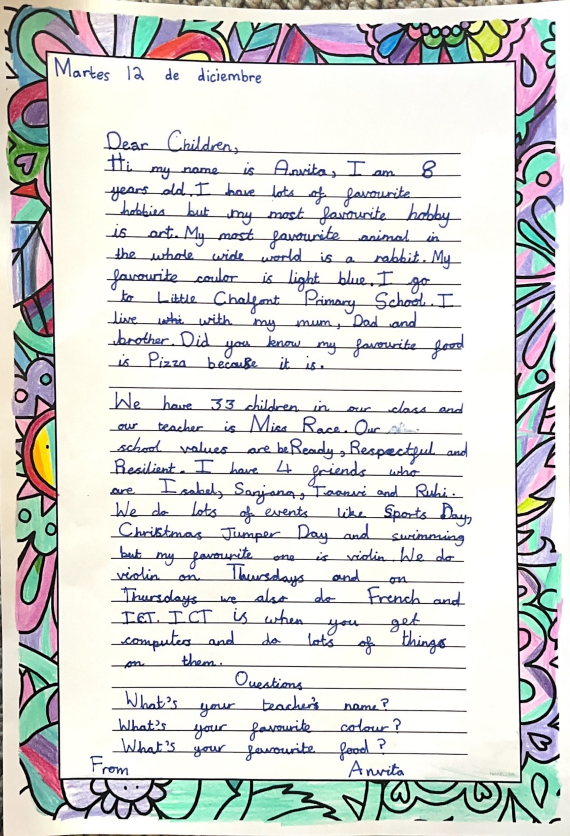 Martes 12 de diciembre
Dear Children,
Hi my name is Anvita, I am 8
years old. I have lots of favourite
hobbies but my most favourite hobby
is art. My most favourite animal in
the whole wide world is a rabbit. My
favourite coulor is light blue. I go
to Little Chalfont Primary School. I
live with my mum, Dad and
brother. Did you know my favourite food
is Pizza because it is.
We have 33 children in our class and
our teacher is Miss Race. Our
school values are be Ready, Respectful and
Resilient. I have 4 friends who
are Isabel, Sanjana, Taanvi and Ruhi.
We do lots of events like Sports Day,
Christmas Jumper Day and swimming
but my favourite one is violin. We do
violin on Thursdays and on
Thursdays we also do French and
ICT. ICT is when you get
computer and do lots of things
on them.
Questions
What's your teacher's name?
What's your favourite colour?
What's your favourite food?
From Anvita